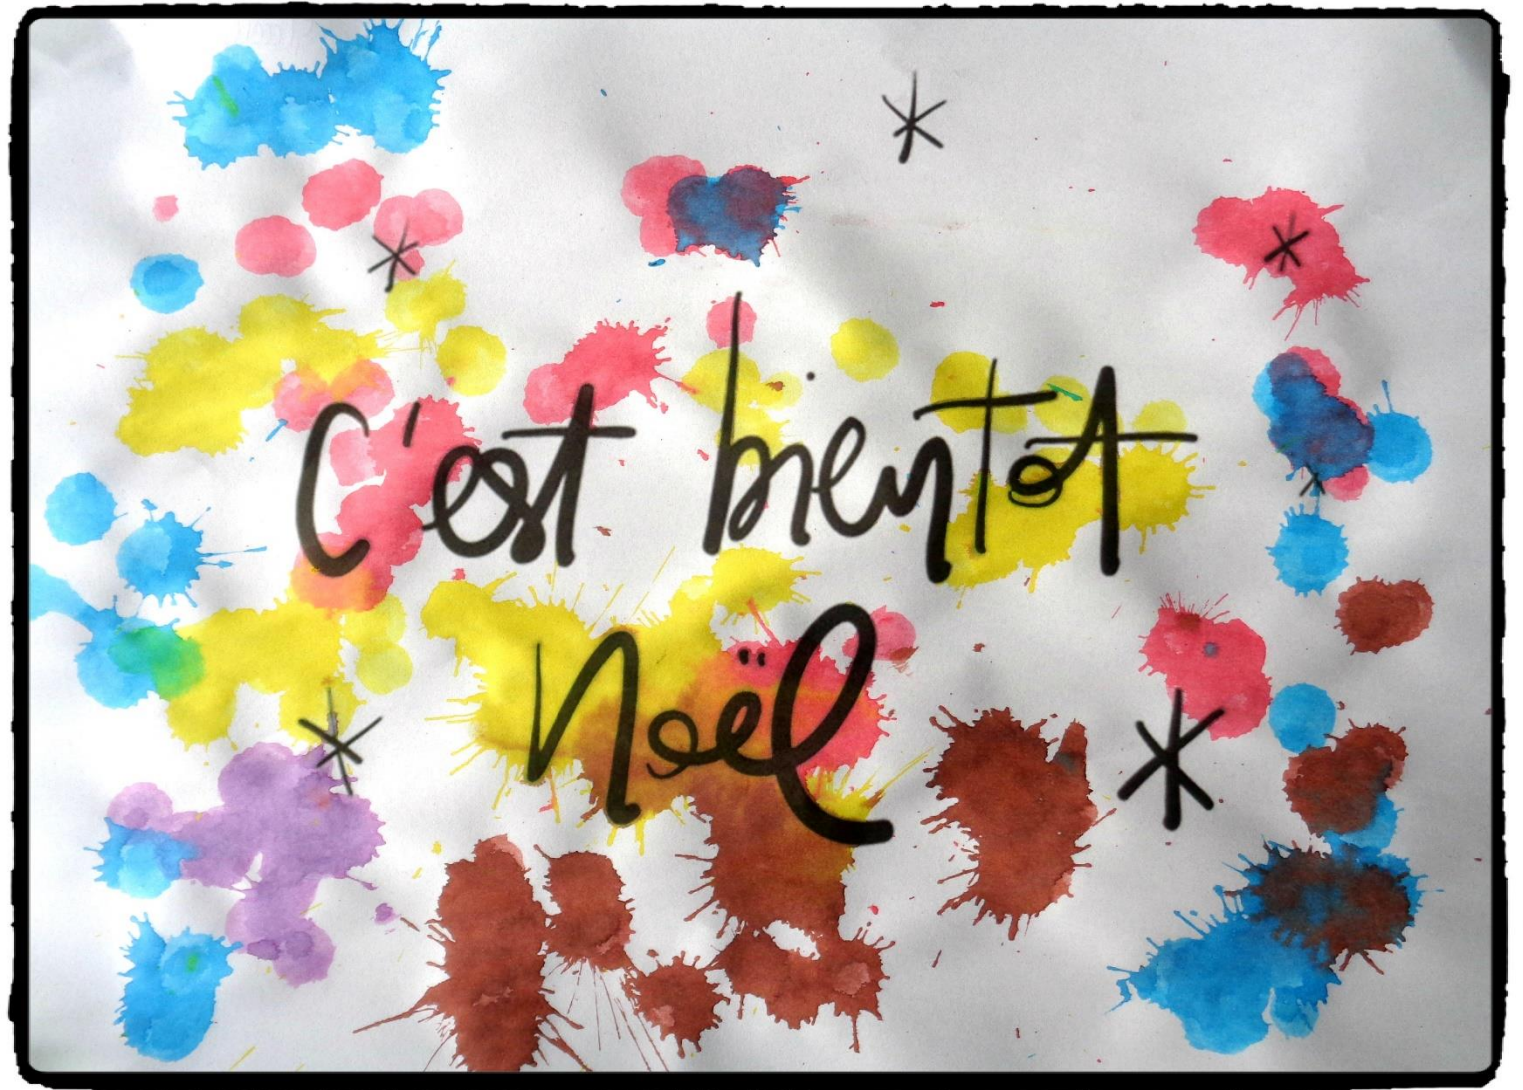 C'est bientot
Noël